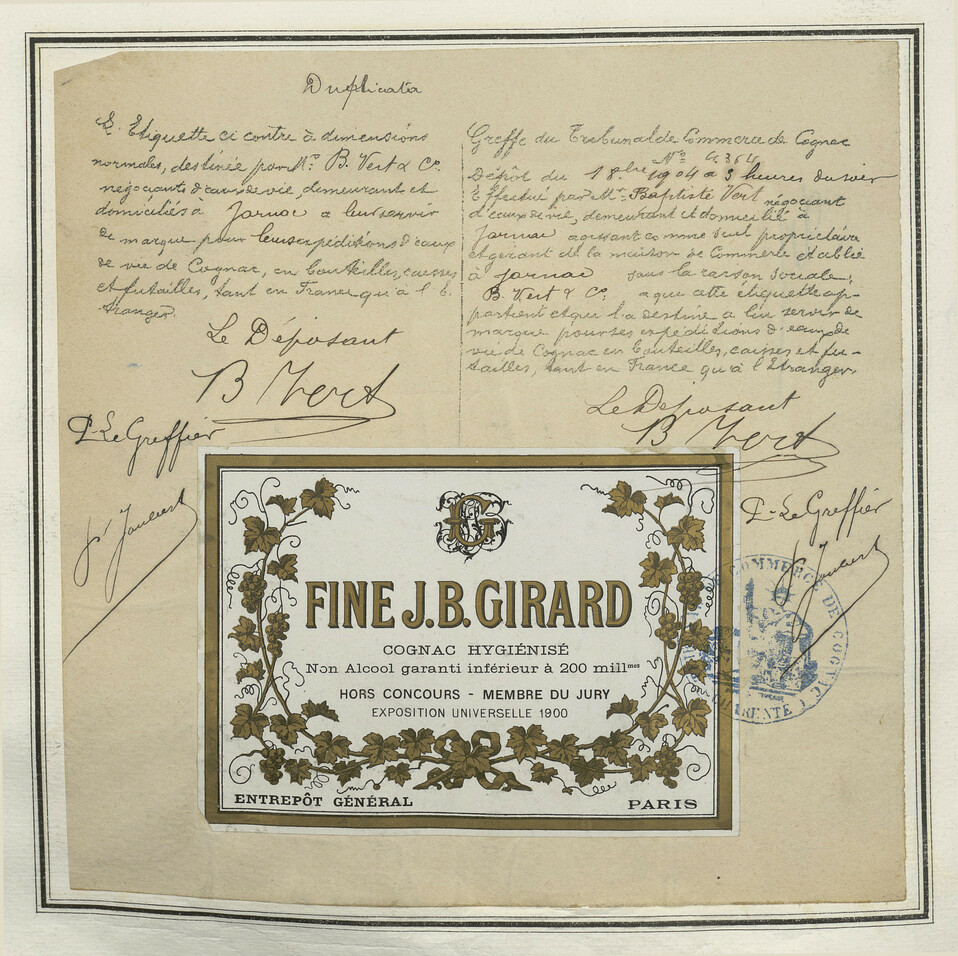 Duplicata
L'Etiquette ci contre à dimensions
normales, destinée par Mr. B. Vert & Co.
négociants d'eaux de vie, demeurant et
domiciliés à Jarnac a leur servir
de marque pour leurs expéditions d'eaux
de vie de Cognac, en bouteilles, caisses
et futailles, tant en France qu'à l'E-
tranger.
Le Déposant
B Vert
P. Le Greffier
Greffe du Tribunal de Commerce de Cognac
No
Dépôt du 1904 à 3 heures du soir
Effectué par Mr. Baptiste Vert négociant
d'eaux de vie, demeurant et domicilié à
Jarnac agissant comme seul propriétaire
et gérant de la maison de Commerce établie
à Jarnac sous la raison sociale,
B. Vert & Co. a que cette étiquette ap-
partient et qui l'a destine a lui servir de
marque pour ses expéditions d'eaux de
vie de Cognac en bouteilles, caisses et fu-
tailles, tant en France qu'à l'Etranger
Le Déposant
B Vert
P. Le Greffier
G
FINE J.B. GIRARD
COGNAC HYGIÉNISÉ
Non Alcool garanti inférieur à 200 millmes
HORS CONCOURS - MEMBRE DU JURY
EXPOSITION UNIVERSELLE 1900
ENTREPÔT GÉNÉRAL
PARIS
COMMERCE DE COGNAC
CHARENTE